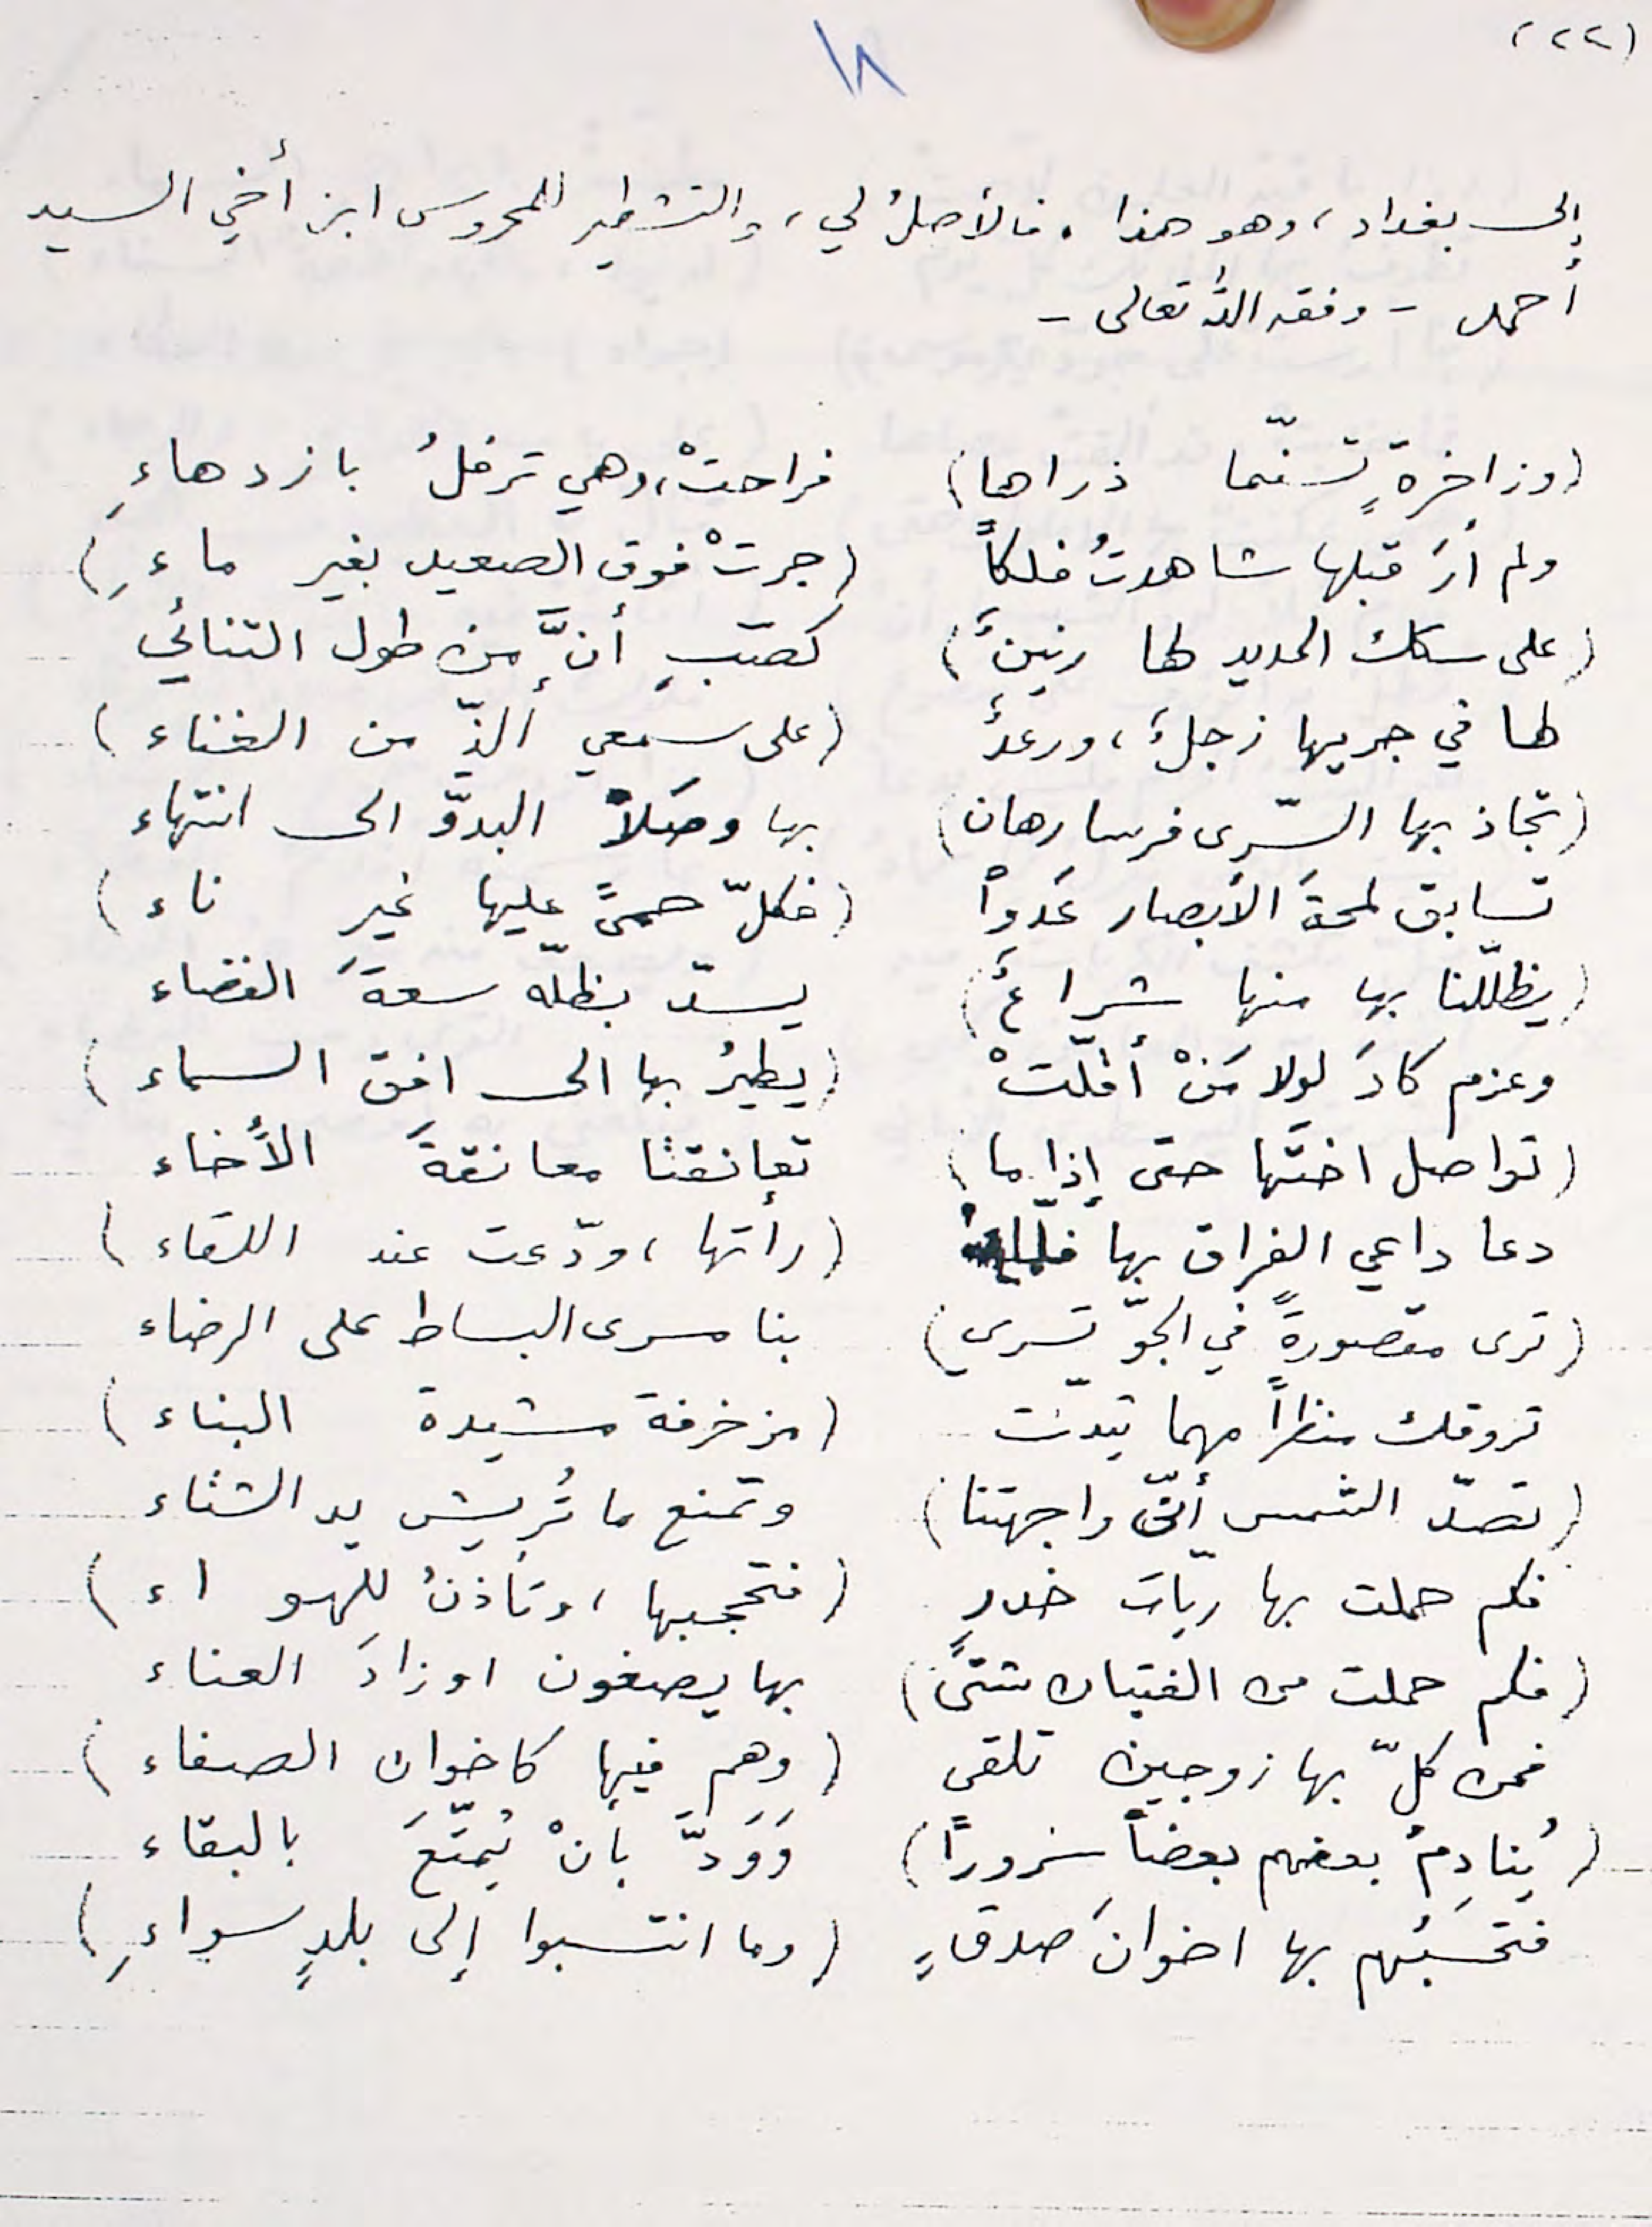 (٢٢)
١٨
إلى بغداد، وهو هذا. فالأصلُ لي، والتشطير للمحروس ابن أخي السيد
أحمد - وفقه الله تعالى -
(وزاخرةٍ تسنّمنا ذراها) فراحتْ، وهي ترفلُ بازدهاءِ
ولم أرَ قبلها شاهدتُ فلكاً (جرتْ فوق الصعيد بغير ماءِ)
(على سكك الحديد لها رنينٌ) كصبٍّ أنَّ من طول التنائي
لها في جريها زجلٌ، ورعدٌ (على سمعي ألذّ من الغناء)
(تجاذبها السّرى فرسا رهان) بها وصلاً البدوّ الى انتهاء
تسابق لمحةَ الأبصار عَدواً (فكلّ حمىً عليها غير ناء)
(يظلّلنا بها منها شراعٌ) يسدّ بظلّه سعةَ الفضاء
وعزم كادَ لولا مَنْ أقلّتْ (يطيرُ بها الى افق السماء)
(تواصل اختَها حتى إذا ما) تعانقتا معانقةَ الأخاء
دعا داعي الفراق بها فلمّا (رأتها، ودّعت عند اللقاء)
(ترى مقصورةً في الجوّ تسري) بنا مسرى البساط على الرخاء
تروقك منظراً مهما تبدّت (مزخرفة مشيدة البناء)
(تصدّ الشمس أنّى واجهتنا) وتمنع ما تُريش يد الشتاء
فكم حملت بها ربّات خدرٍ (فتحجبها، وتأذنُ للهواء)
(فكم حملت من الفتيان شتىً) بها يصغون اوزادَ العناء
فمن كلّ بها زوجين تلقى (وهم فيها كاخوان الصفاء)
(يُنادِمُ بعضهم بعضاً سروراً) وَوَدَّ بأنْ يُمتّعَ بالبقاء
فتحسبُهم بها اخوانَ صدقٍ (وما انتسبوا إلى بلدٍ سواءِ)